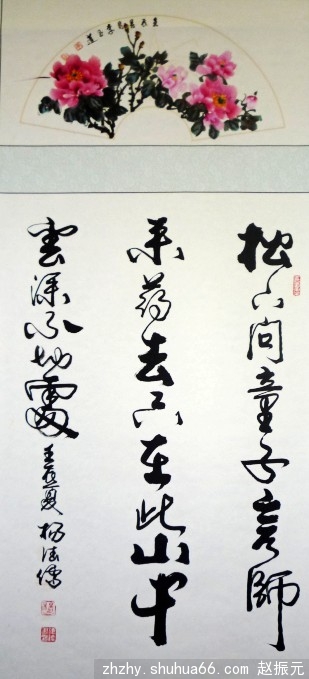 松下问童子言師
采药去只在此山中
雲深不知處
壬辰夏
zhzhy.shuhua66.com 赵振元